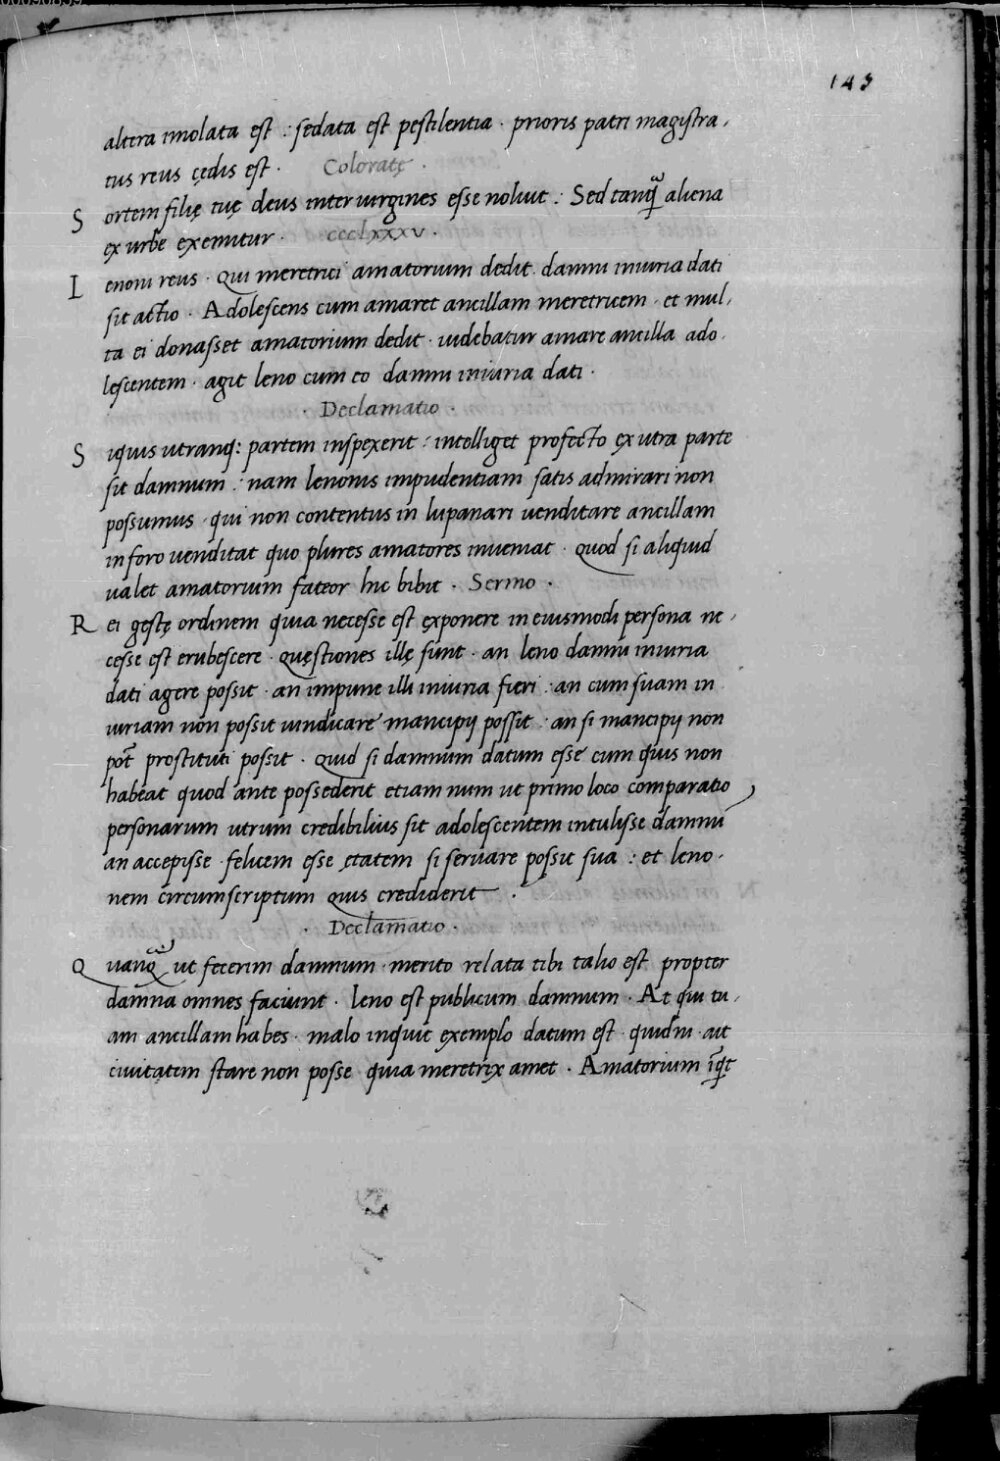 145
altera imolata est : sedata est pestilentia · prioris patri magistra,
tus reus cędis est · Coloratę ·
Sortem filię tuę deus inter virgines esse noluit : Sed tanq̃ aliena
ex urbe exemitur · ccclxxxv ·
Lenoni reus · Qui meretrici amatorium dedit · damni iniuria dati
sit actio · Adolescens cum amaret ancillam meretricem · et mul,
ta ei donasset amatorium dedit · videbatur amare ancilla ado,
lescentem · agit leno cum eo damni iniuria dati ·
· Declamatio ·
Siquis utranq: partem inspexerit : intelliget profecto ex utra parte
sit damnum : nam lenonis impudentiam satis admirari non
possumus · qui non contentus in lupanari venditare ancillam
in foro venditat quo plures amatores inveniat · Quod si aliquid
valet amatorium fateor hic bibit · Sermo ·
Rei gestę ordinem quia necesse est exponere in eiusmodi persona ne,
cesse est erubescere · Quęstiones illę sunt · an leno damni iniuria
dati agere possit · an impune illi iniuria fieri : an cum suam in
iuriam non possit vindicare mancipij possit : an si mancipij non
pot̃ prostituti possit · Quid si damnum datum esse cum quis non
habeat quod ante possederit etiam num ut primo loco comparatio
personarum utrum credibilius sit adolescentem intulisse damnũ
an accepisse · felicem esse ętatem si servare possit sua : et leno,
nem circumscriptum quis crediderit ·
· Declamatio ·
Quanq̃ ut fecerim damnum · merito relata tibi talio est propter
damna omnes faciunt · leno est publicum damnum · At qui tu,
am ancillam habes · malo inquit exemplo datum est · quidni · ait
civitatem stare non posse quia meretrix amet · Amatorium iq̃t